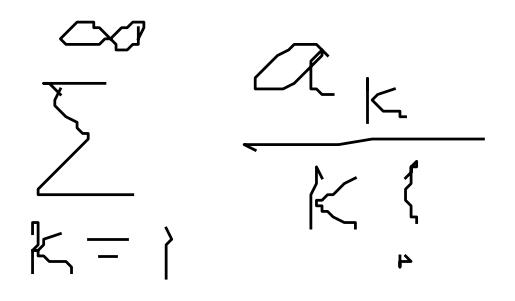 \sum_{k=1}^{\infty} \frac{a_k}{k!}